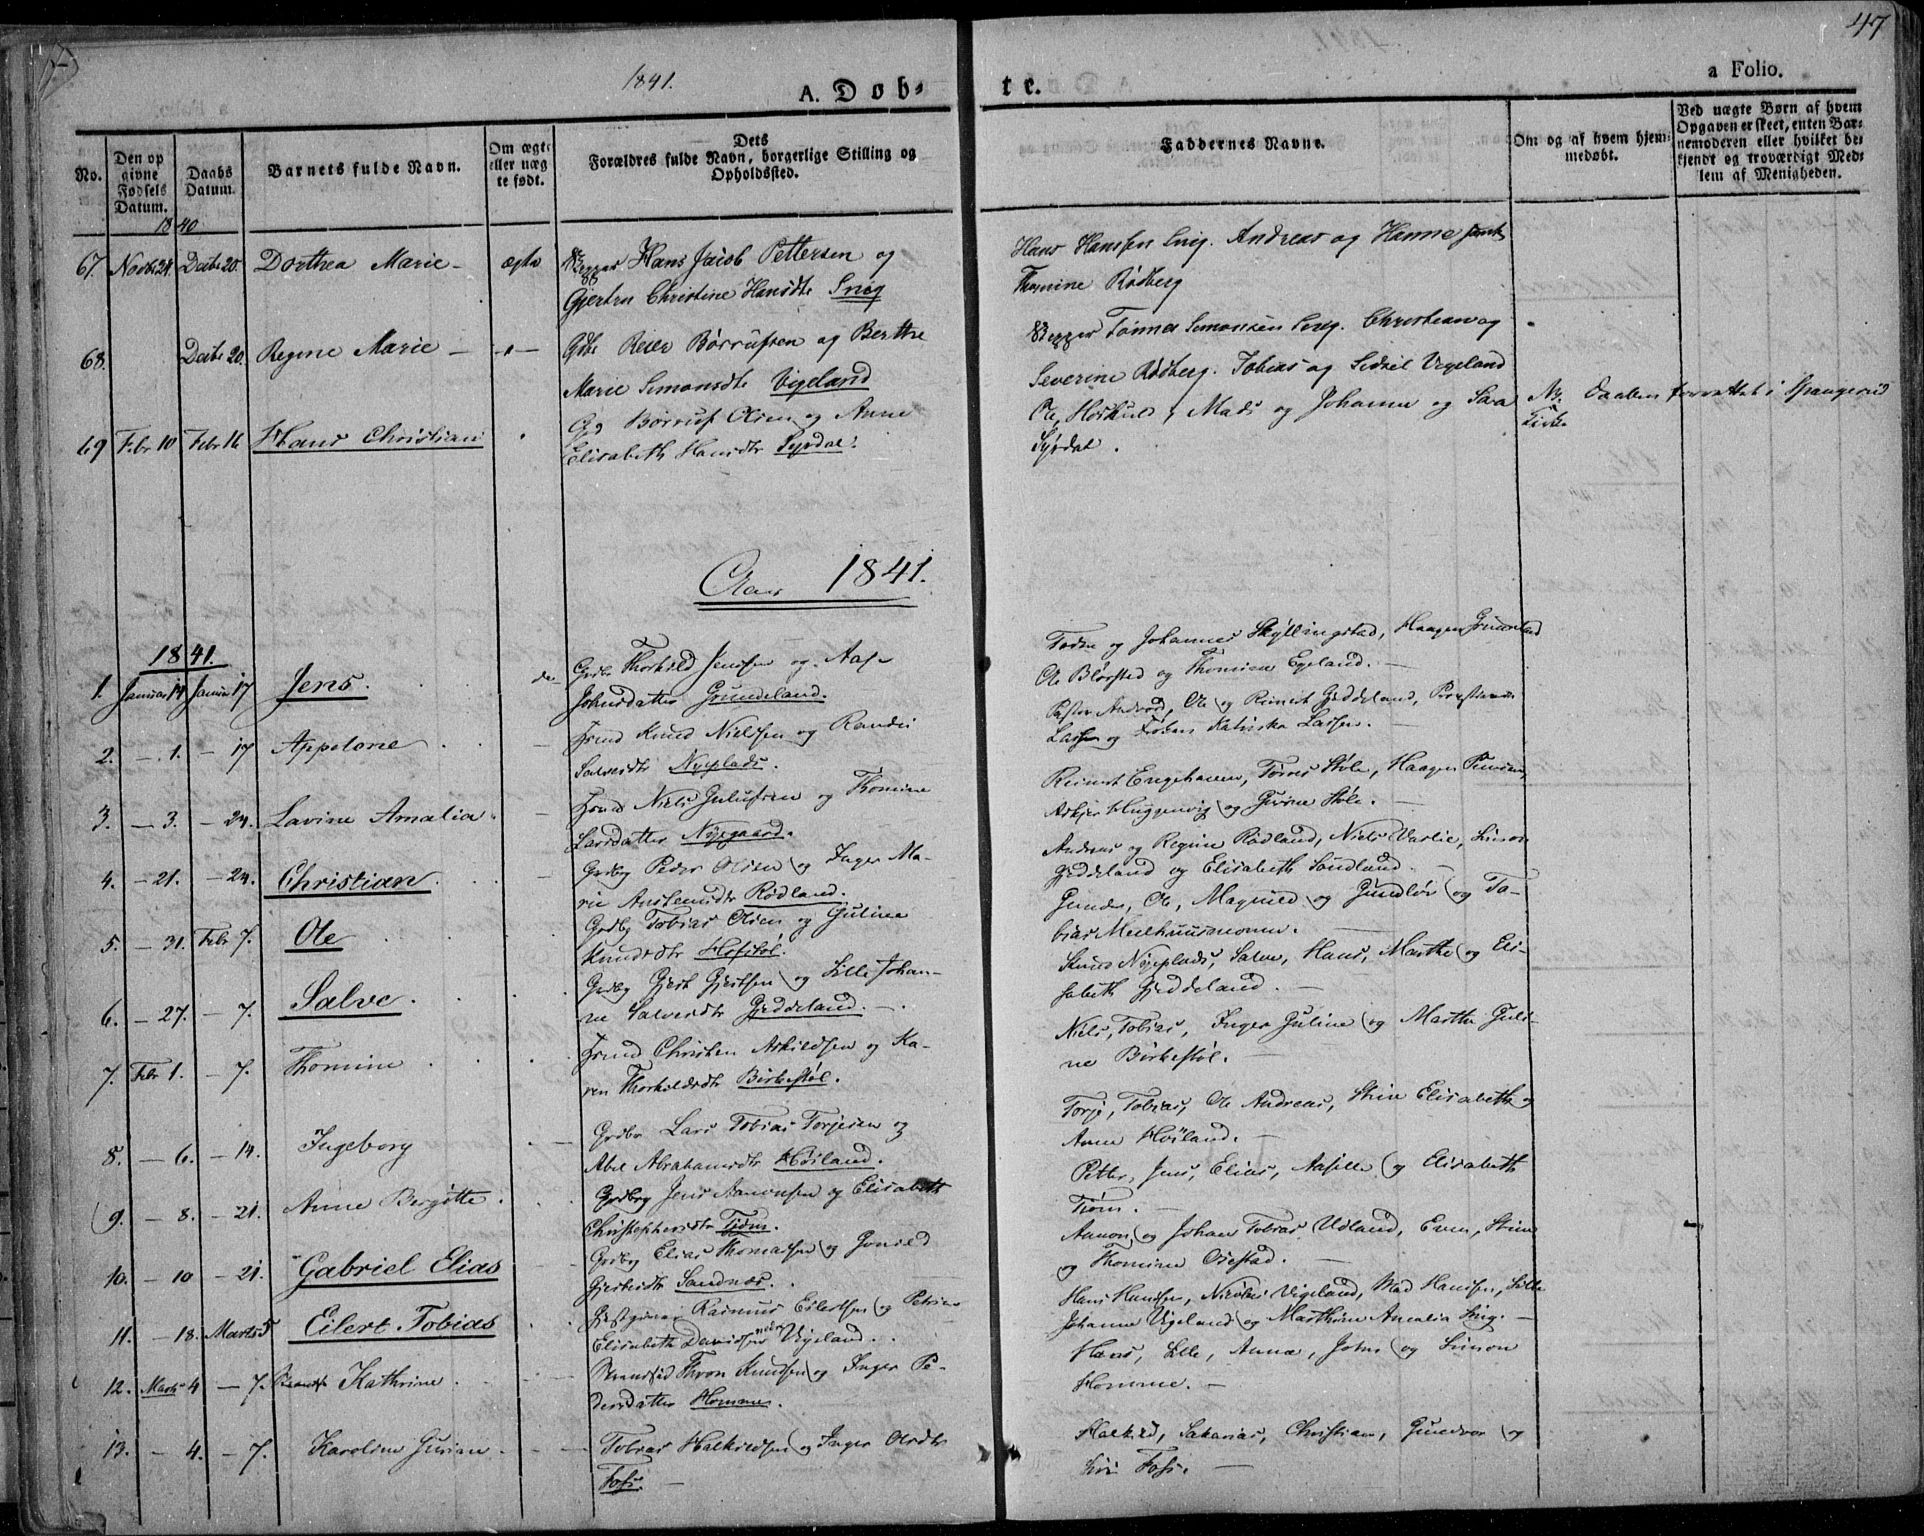 47
1841.
A. Døb-
te.
a Folio.
No.
Den op
givne
Fødsels
Datum.
Daabs
Datum.
Barnets fulde Navn.
Om ægte
eller uæg
te født.
Dets
Forældres fulde Navn, borgerlige Stilling og
Opholdssted.
Faddernes Navne.
Om og af hvem hjem-
medøbt.
Ved uægte Børn af hvem
Opgaven er skeet, enten Bar-
nemoderen eller hvilket be-
kjendt og troværdigt Med-
lem af Menigheden.
1840
67. Novbr 24 Decbr 20. Dorthea Marie - ægte Hans Jacob Pettersen og
Gjertru Christine Hansdtr Snig
Hans Hansen Snig. Andreas og Hanne
Thomine Rødberg
68. Decbr 20. Regine Marie - Gdbr Reier Børrufsen og Berthe
Marie Simonsdtr Vigeland
Tønnes Simonsen Snig. Christian og
Severine Rødberg. Tobias og Sidsel Vigeland
69 Febr 10 Febr 16 Hans Christian Børruf Olsen og Anne
Elisabeth Hansdtr Syrdal.
Ole, Mads og Johanne og
Syrdal.
Daaben forrettet i Spangereid
Aar 1841.
1841.
1. Januar 14 Januar 17 Jens. Gdbr Thorkild Jensen og Aase
Johnsdatter Grundeland.
og Johannes Skyllingstad, Haagen Grundeland
Ole Blørsted og Thomine Egeland. -
2. - 1. - 17 Appelone Knud Nielsen og Randi
Salvesdtr Nyeplads.
Pastor Ole og Reinert Gjeddeland,
Lassen og Frøken Lassen. -
3. - 3. - 24. Lavine Amalia. Niels Gulufsen og Thomine
Larsdatter Nygaard.
Reinert Engehaven, Tørres Støle, Haagen
og Støle. -
4. - 21. - 24. Christian Grdbr Peder Olsen og Inger Ma-
rie Anstensdtr Rødland.
Andreas og Regine Rødland, Niels Varlie, Simon
Gjeddeland og Elisabeth Sandland. -
5. - 31. Febr 7. Ole Grdbr Tobias Olsen og Guline
Knudsdtr
Ole, Magnild og Gundlør og To-
bias
6. - 27. - 7. Salve. Grdbr Gjert Gjertsen og Sille Johan-
ne Salvesdtr Gjeddeland. -
Knud Nyeplads, Salve, Hans, Marthe og Eli-
sabeth Gjeddeland. -
7. Febr 1. - 7. Thomine Christen Askildsen og Ka-
ren Thorkildsdtr Birkestøl.
Niels, Tobias, Inger Guline og Marthe Guli-
ne Birkestøl. -
8. - 6. - 14. Ingeborg Grdbr Lars Tobias Torjesen og
Abel Abrahamsdtr Høiland.
Torje, Tobias, Ole Andreas, Stine Elisabeth og
Anne Høiland. -
9. - 8. - 21. Anne Bergitte. Grdbr Jens Aanonsen og Elisabeth
Christophersdtr Tjøm.
Petter, Jens, Elias, Aasille og Elisabeth
Tjøm. -
10. - 10 - 21. Gabriel Elias Grdbr Elias Thomassen og Gunild
Gjertsdtr Sandnæs.
Aanon og Johan Tobias Udland, Even, Stine
og Thomine Osestad. -
11. - 18. Marts 5 Eilert Tobias Rasmus Eilertsen og Petrine
Elisabeth Davidsen Vigeland.
Hans Hansen, Nicolai Vigeland, Mad Hansen, Lille
Johanne Vigeland og Marthine Amalia Snig. -
12. Marts 4 - 7. Kathrine Thron Knudsen og Inger Pe-
dersdatter Homme.
Hans, Lille, Anna, John og Simon
Homme. -
13. - 4. - 7. Karoline Guriane Tobias Halkildsen og Inger Olsdtr
Foss.
Halkild, Sakarias, Christian, Gundvor og
Siri Foss. -